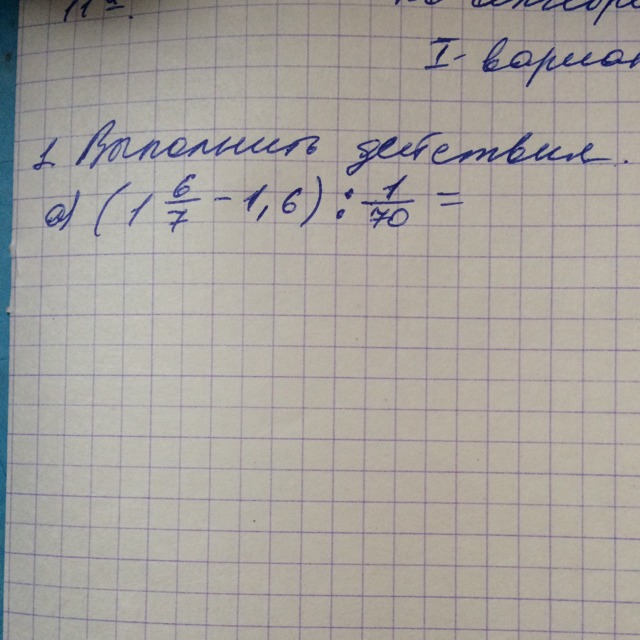 I-вариан
1 Выполнить действия.
а) (1 6/7 - 1,6) : 1/70 =